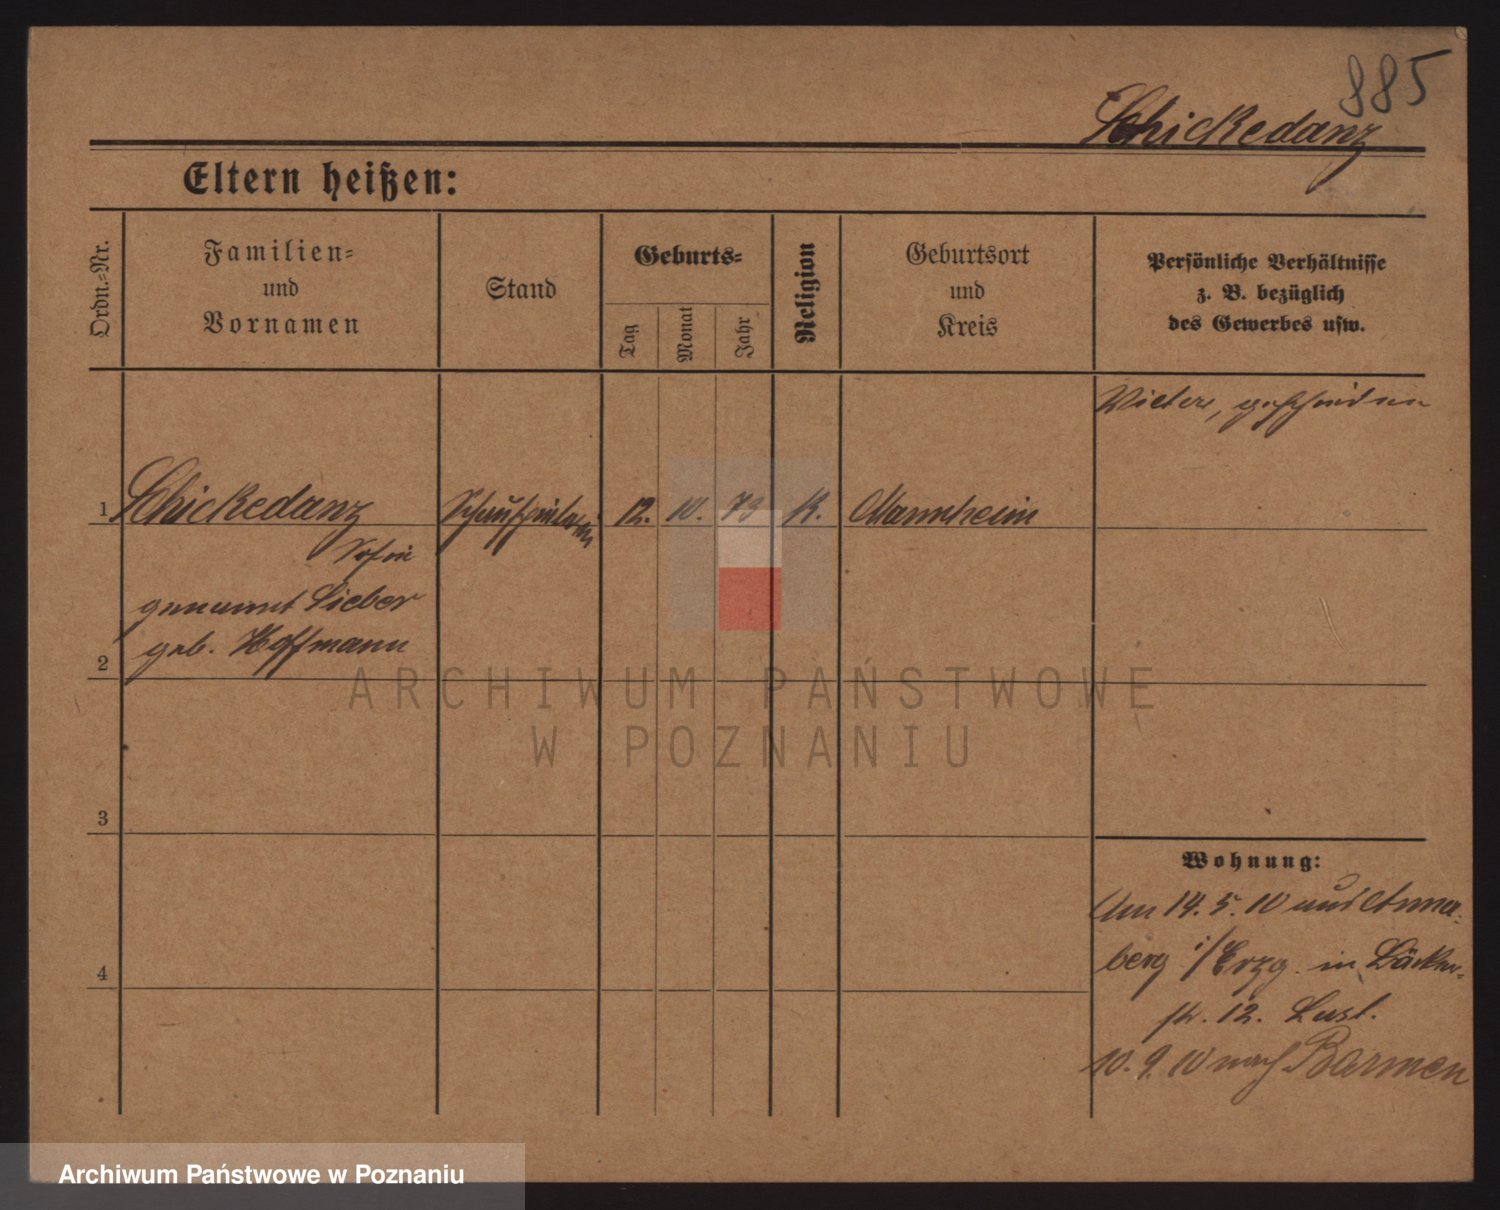 885
Schickedanz
Eltern heißen:
Ordn.=Nr.
Familien=
und
Vornamen
Stand
Geburts=
Tag
Monat
Jahr
Religion
Geburtsort
und
Kreis
Persönliche Verhältnisse
z. B. bezüglich
des Gewerbes usw.
geschieden
1 Schickedanz Schauspielerin 12. 10. 73 K. Mannheim
Sofie
genannt Lieber
geb. Hoffmann
2
3
4
Wohnung:
Am 14. 5. 10 aus Anna=
berg i/Erzg. in Bäcker=
str. 12.
10. 9. 10 nach Barmen
ARCHIWUM PAŃSTWOWE
W POZNANIU
Archiwum Państwowe w Poznaniu